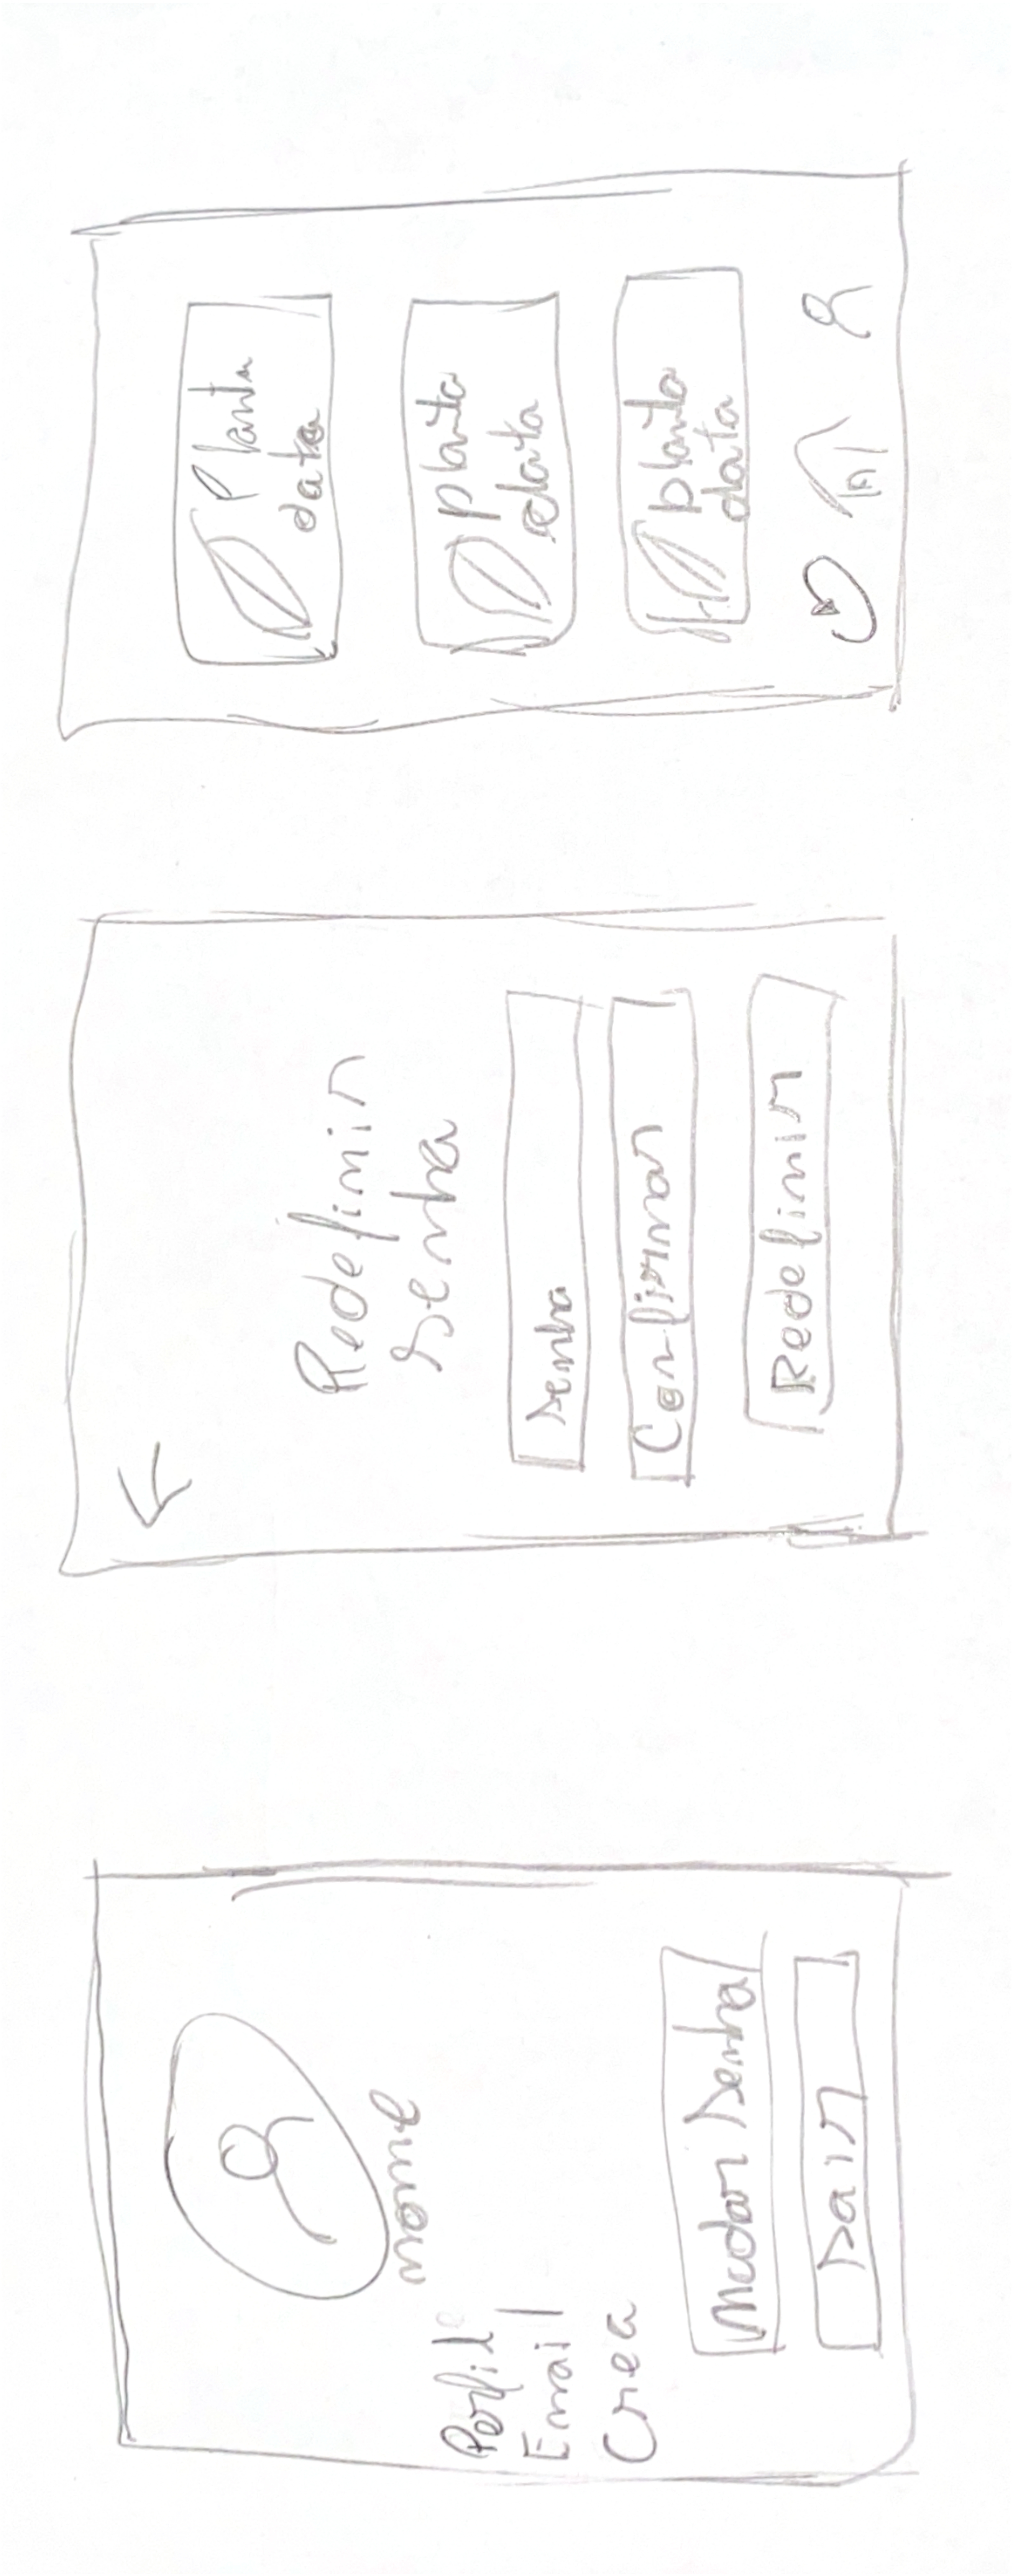 nome
Perfil
Email
Crea
Mudar Senha
Sair
Redefinir
Senha
Senha
Confirmar
Redefinir
Planta
data
planta
data
planta
data